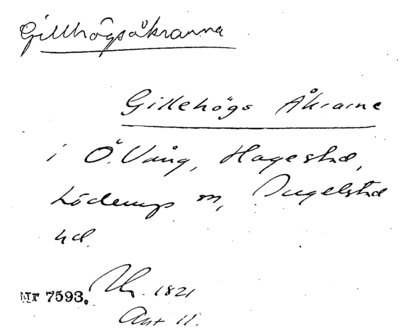 Gillhögsåkrarna
Gillehögs Åkrarne
i Ö. Vång, Hagestad,
Löderup sn, Ingelstad
hd.
Nr 7593. Uh. 1821
Akt 11.